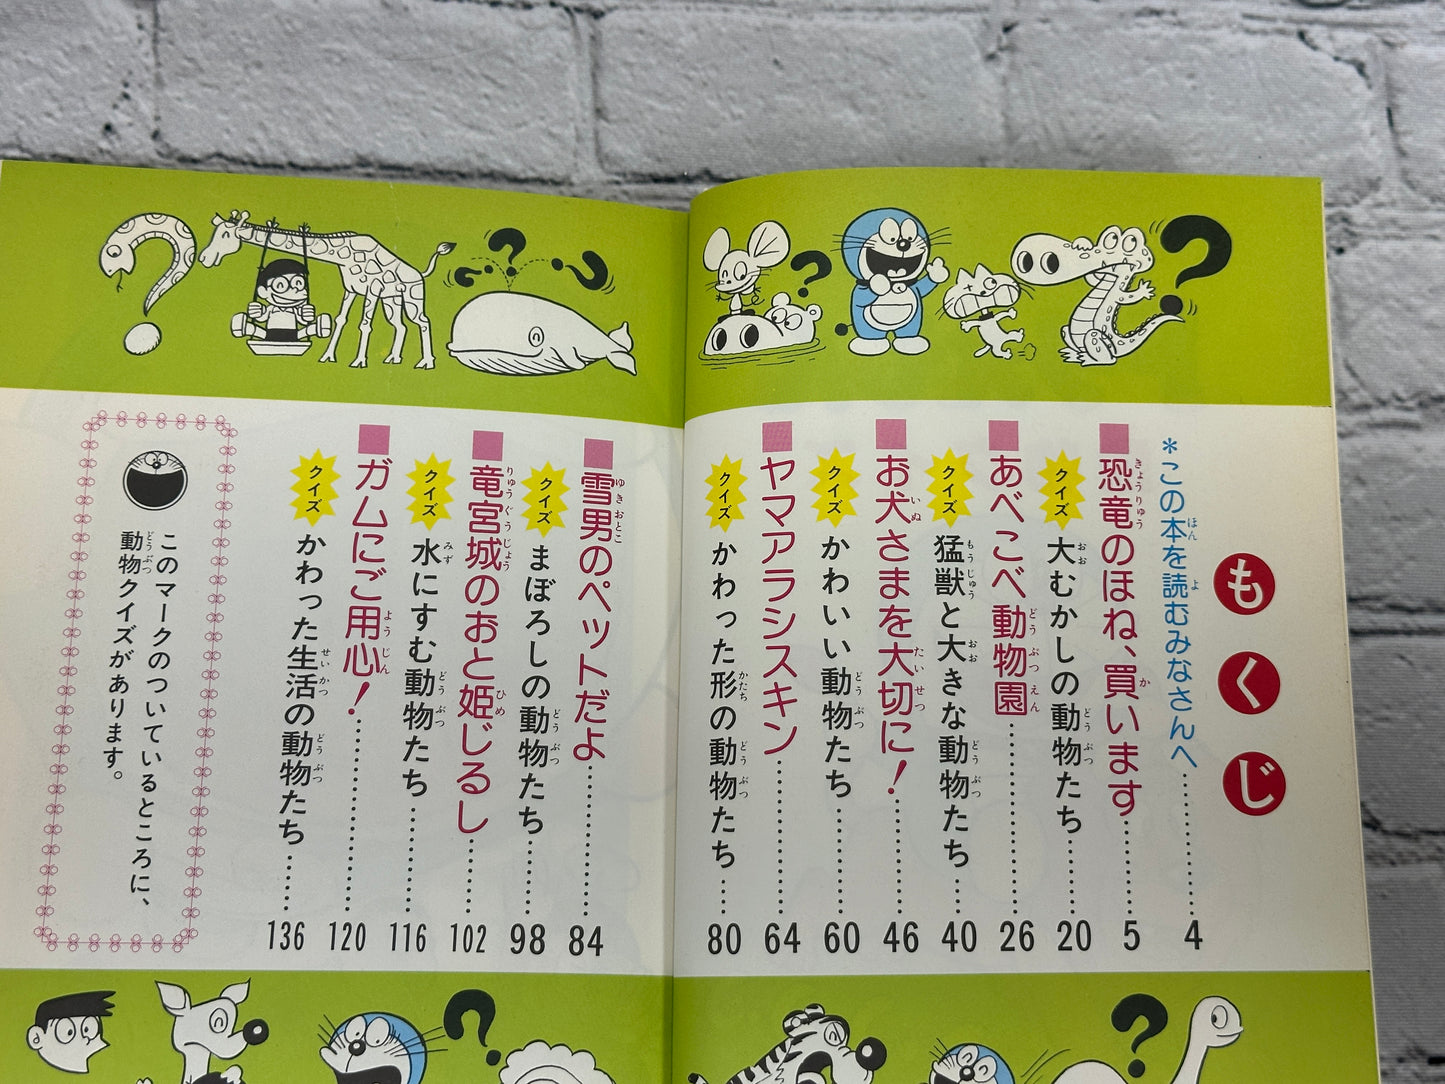 もくじ
*この本を読むみなさんへ……4
恐竜のほね、買います……5
クイズ 大むかしの動物たち……20
あべこべ動物園……26
クイズ 猛獣と大きな動物たち……40
お犬さまを大切に！……46
クイズ かわいい動物たち……60
ヤマアラシスキン……64
クイズ かわった形の動物たち……80
雪男のペットだよ……84
クイズ まぼろしの動物たち……98
竜宮城のおと姫じるし……102
クイズ 水にすむ動物たち……116
ガムにご用心！……120
クイズ かわった生活の動物たち……136
このマークのついているところに、
動物クイズがあります。